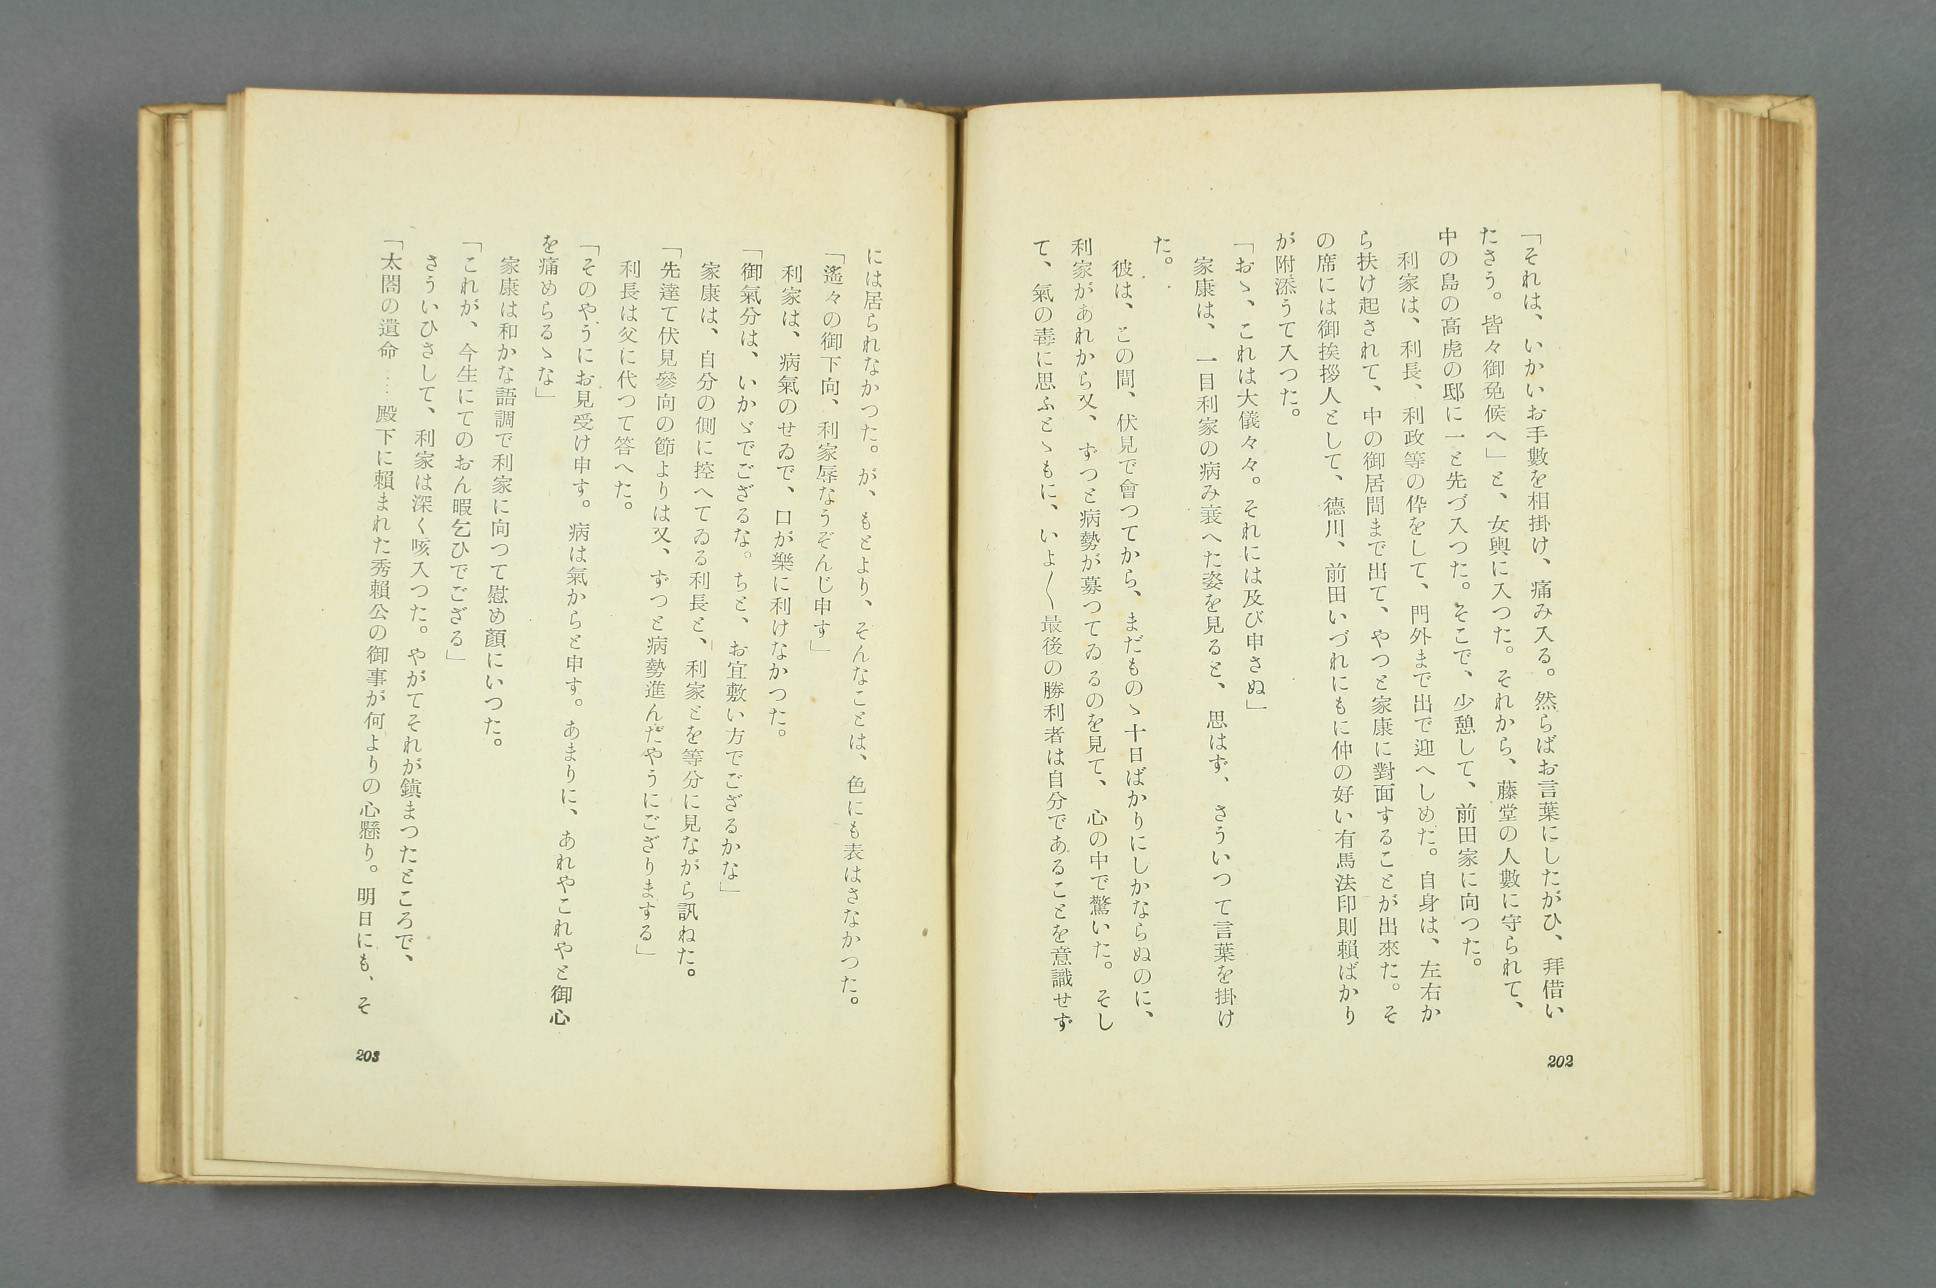 「それは、いかいお手數を相掛け、痛み入る。然らばお言葉にしたがひ、拜借い
たさう。皆々御免候へ」と、女輿に入つた。それから、藤堂の人數に守られて、
中の島の高虎の邸に一と先づ入つた。そこで、少憩して、前田家に向つた。
利家は、利長、利政等の伜をして、門外まで出で迎へしめた。自身は、左右か
ら扶け起されて、中の御居間まで出て、やつと家康に對面することが出來た。そ
の席には御挨拶人として、德川、前田いづれにもに仲の好い有馬法印則賴ばかり
が附添うて入つた。
「おゝ、これは大儀々々。それには及び申さぬ」
家康は、一目利家の病み衰へた姿を見ると、思はず、さういつて言葉を掛け
た。
彼は、この間、伏見で會つてから、まだもの丶十日ばかりにしかならぬのに、
利家があれから又、ずつと病勢が募つてゐるのを見て、心の中で驚いた。そし
て、氣の毒に思ふとゝもに、いよ〱最後の勝利者は自分であることを意識せず
202
には居られなかつた。が、もとより、そんなことは、色にも表はさなかつた。
「遙々の御下向、利家辱なうぞんじ申す」
利家は、病氣のせゐで、口が樂に利けなかつた。
「御氣分は、いかゞでござるな。ちと、お宜敷い方でござるかな」
家康は、自分の側に控へてゐる利長と、利家とを等分に見ながら訊ねた。
「先達て伏見參向の節よりは又、ずつと病勢進んだやうにござりまする」
利長は父に代つて答へた。
「そのやうにお見受け申す。病は氣からと申す。あまりに、あれやこれやと御心
を痛めらるゝな」
家康は和かな語調で利家に向つて慰め顏にいつた。
「これが、今生にてのおん暇乞ひでござる」
さういひさして、利家は深く咳入つた。やがてそれが鎭まつたところで、
「太閤の遺命……殿下に賴まれた秀賴公の御事が何よりの心懸り。明日にも、そ
203